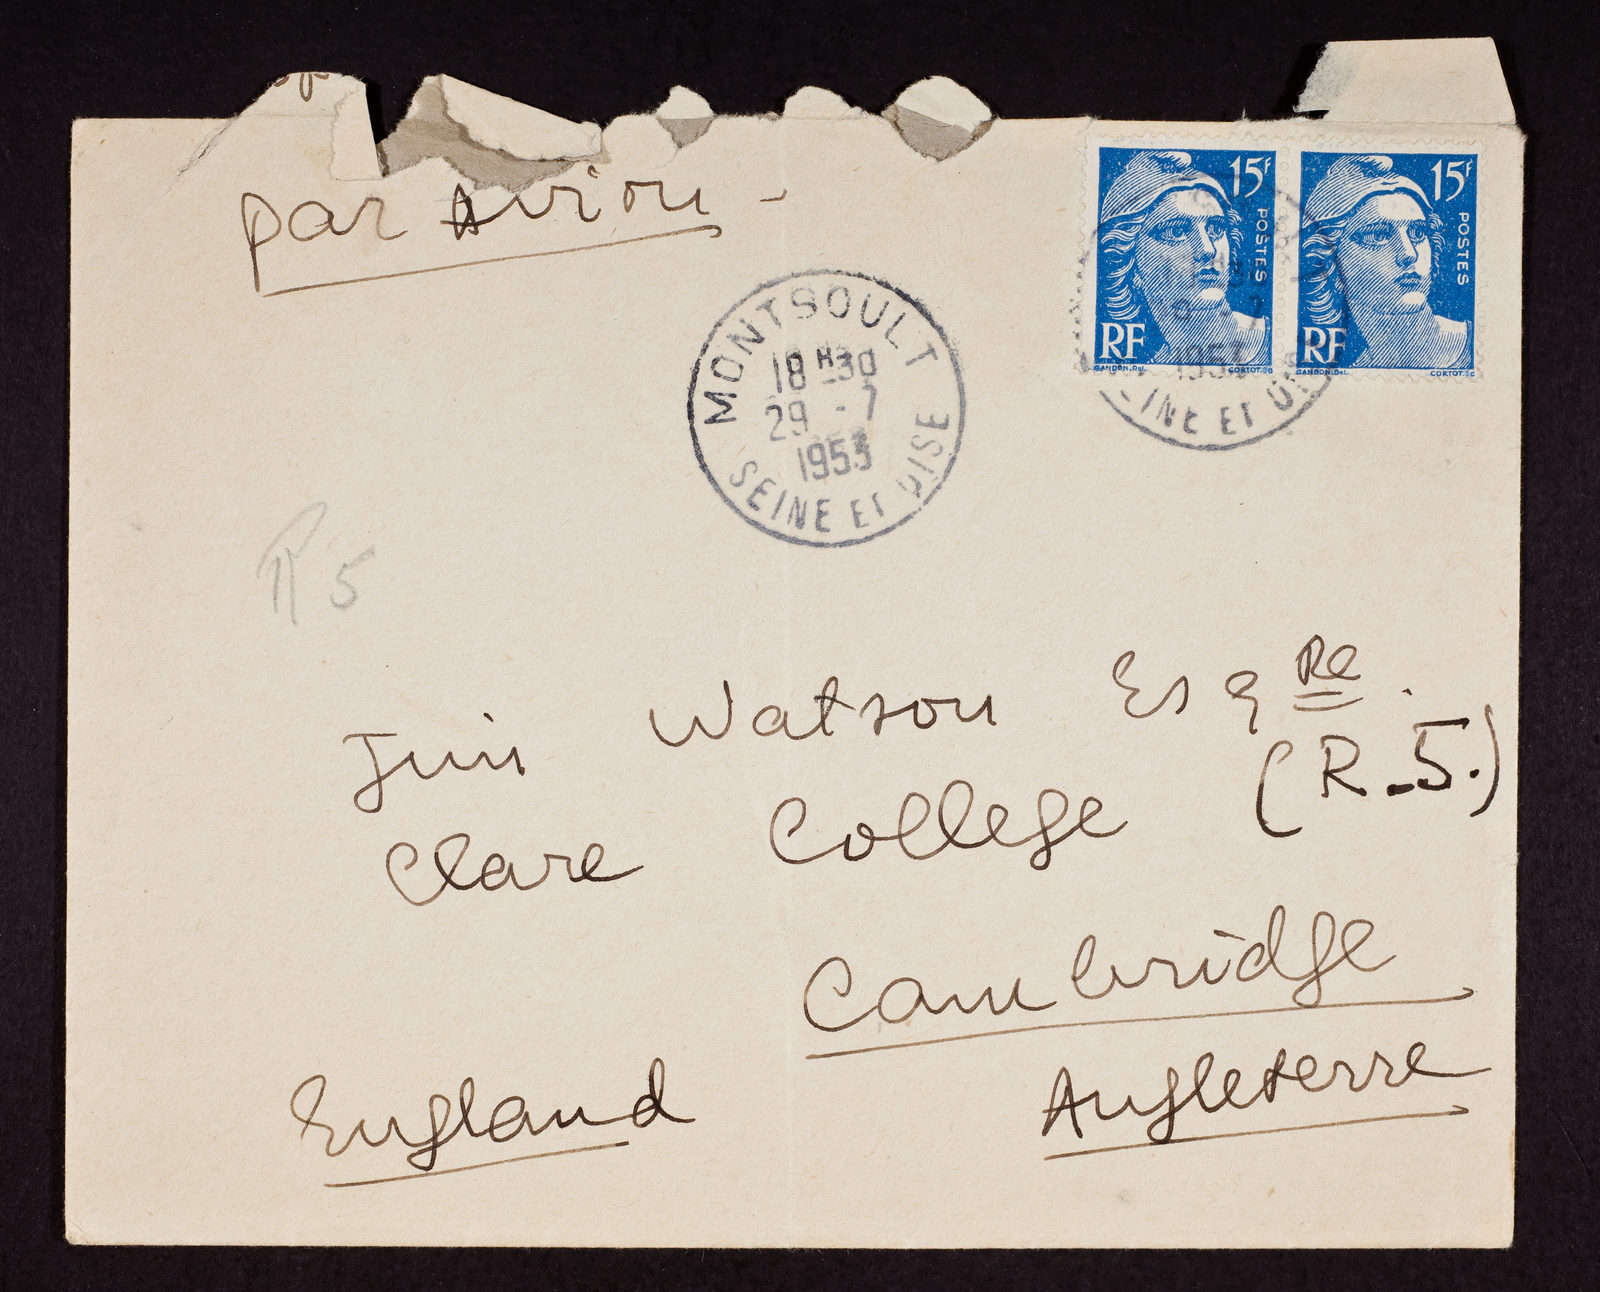 par Avion -
15F
POSTES
RF
GANDON.Del. CORTOT.Sc
15F
POSTES
RF
GANDON.Del. CORTOT.Sc
MONTSOULT
18 H 30
29 - 7
1953
SEINE ET OISE
1953
SEINE ET OISE
5
Jim Watson Esqre.
(R.5.)
Clare College
Cambridge
England Angleterre